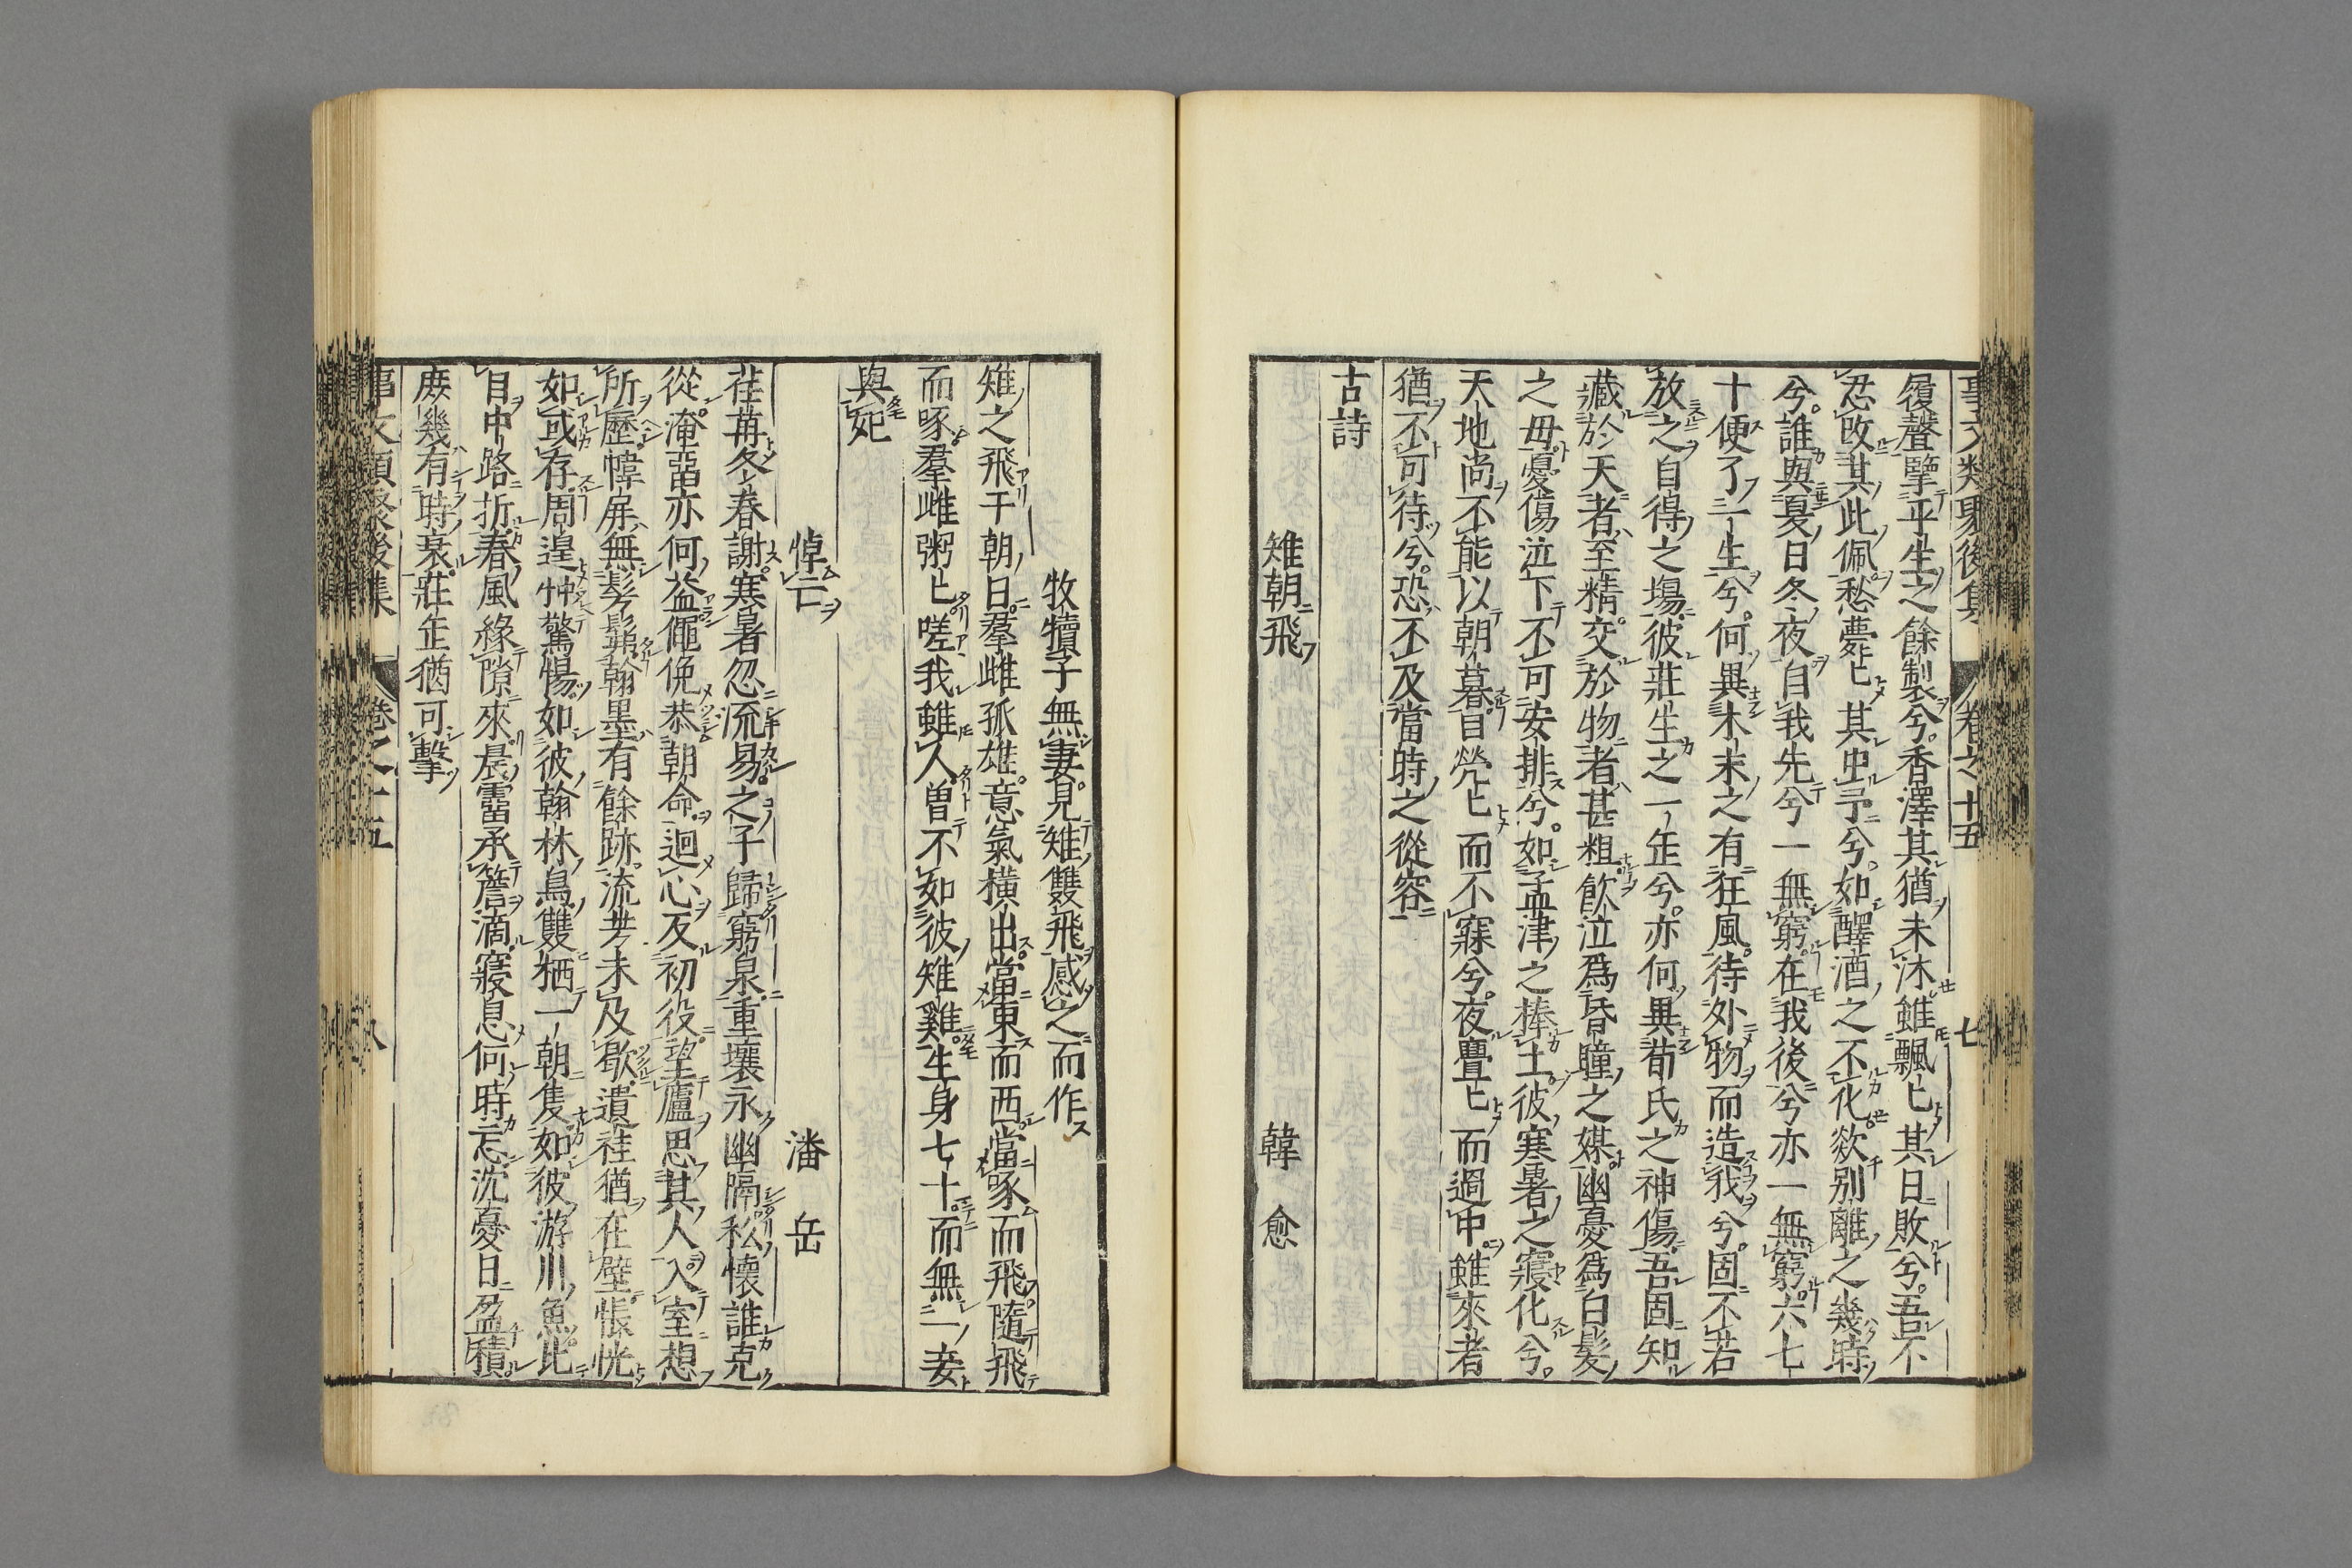 事文類聚後集 卷之十五 七
履聲擥平生之餘製兮香澤其猶未沐雖飄〻其日敗兮吾不
忍改其此佩愁夢〻其虫予兮如醳酒之不化欻別離之幾時
兮誰與夏日冬夜自我先兮一無窮在我後兮亦一無窮六七
十便了一生兮何異木末之有狂風待外物而造我兮固不若
放之自得之塲彼莊生之一年兮亦何異荀氏之神傷吾固知
藏於天者至精交於物者甚粗飲泣爲昏瞳之媒幽憂爲白髮
之毋憂傷泣下不可安排兮如孟津之捧土彼寒暑之寢化兮
天地尚不能以朝暮目煢〻而不寐兮夜亹〻而過中雖來者
猶不可待兮恐不及當時之從容
古詩
雉朝飛 韓愈
牧犢子無妻見雉雙飛感之而作
雉之飛于朝日羣雌孤雄意氣橫出當東而西當啄而飛隨飛
而啄羣雌粥〻嗟我雖人曽不如彼雉雞生身七十而無一妾
與妃
悼亡 潘岳
荏苒冬春謝寒暑忽流易之子歸窮泉重壤永幽隔私懷誰克
從淹畱亦何益僶俛恭朝命迴心反初役望廬思其人入室想
所歷幃屏無髣髴翰墨有餘跡流芳未及歇遺挂猶在壁悵怳
如或存周遑忡驚惕如彼翰林鳥雙栖一朝隻如彼游川魚比
目中路折春風緣隙來晨霤承簷滴寢息何時忘沈憂日盈積
庶幾有時衰莊缶猶可擊
事文類聚後集 卷之十五 八